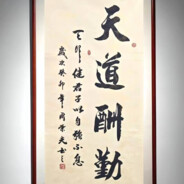 天道酬勤
天行健君子以自强不息
歲次癸卯年